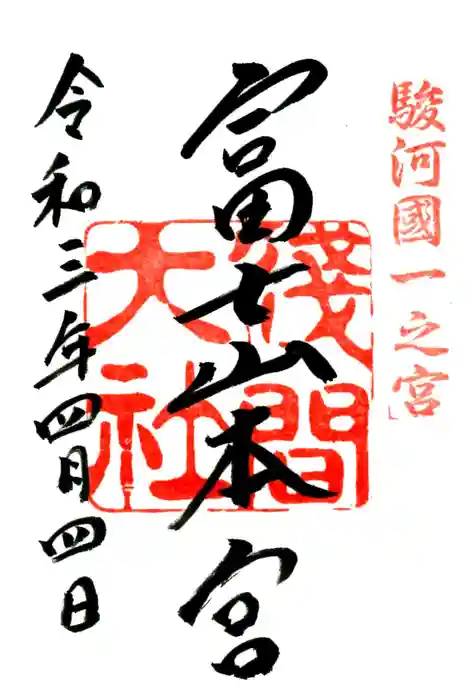 駿河國一之宮
富士山本宮
淺間
大社
令和三年四月四日